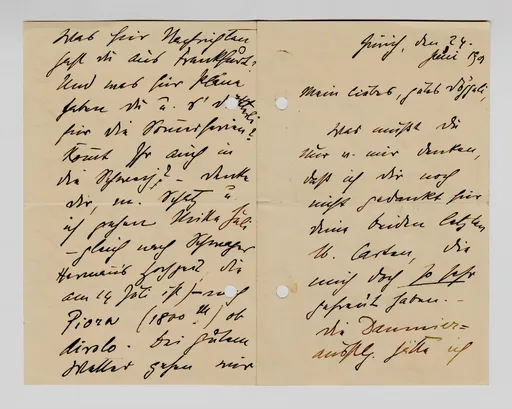 Zürich, den 24.
Juni
Mein liebes, gutes
Was musst Du
nur v. mir denken,
dass ich Dir noch
nicht gedankt für
Deine beiden letzten
lb. Carten, die
mich doch so sehr
gefreut haben. –
Die Daumier=
ausstlg. hätte ich
Was für Nachrichten
hast du aus Frankfurt?
Und was für Pläne
haben du u.
für die Sommerferien?
Kommt Ihr auch in
die Schweiz? – Denke
dir, m. Schatz u.
ich gehen Mitte Juli
– gleich nach Schwager
Hermanns Hochzeit, die
am 14 Juli ist) – nach
Piora (1800 m) ob
Airolo. Bei gutem
Wetter gehen wir